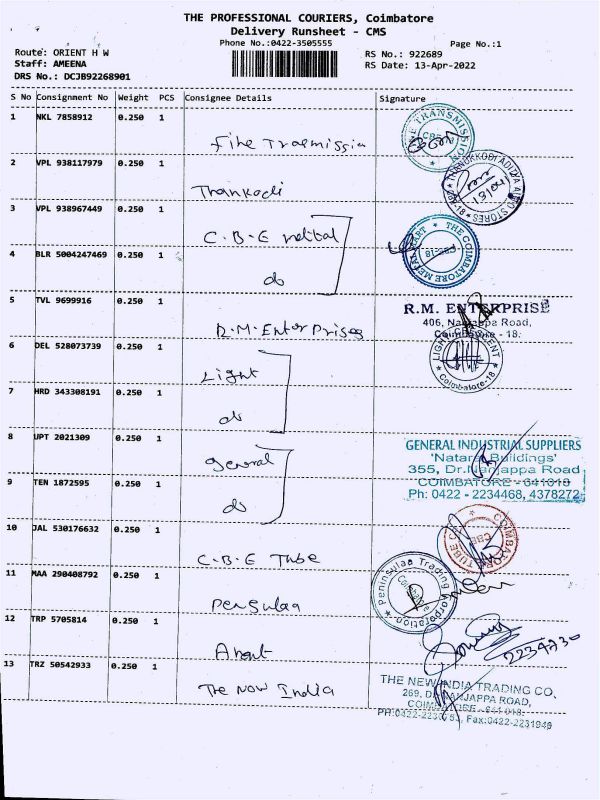 THE PROFESSIONAL COURIERS, Coimbatore
Delivery Runsheet - CMS
Phone No.:0422-3505555
Page No.:1
Route: ORIENT H W
RS No.: 922689
Staff: AMEENA
RS Date: 13-Apr-2022
DRS No.: DCJB92268901
S No Consignment No Weight PCS Consignee Details Signature
1 NKL 7858912 0.250 1
THE TRANSMISSION
Fine
2 VPL 938117979 0.250 1
Thankodi
3 VPL 938967449 0.250 1
C.B.E mettal
THE COIMBATORE METAL MART
CBE-18
4 BLR 5004247469 0.250 1
do
5 TVL 9699916 0.250 1
R.M. ENTERPRISE
406, Nanjappa Road,
Coimbatore - 18.
R.M.Enter Prises
6 DEL 528073739 0.250 1
Light
Coimbatore-18
7 HRD 343308191 0.250 1
do
8 UPT 2021309 0.250 1
GENERAL INDUSTRIAL SUPPLIERS
'Nataraj Buildings'
355, Dr.Nanjappa Road
COIMBATORE - 641018
Ph: 0422 - 2234468, 4378272
general
9 TEN 1872595 0.250 1
do
10 JAL 530176632 0.250 1
COIMBATORE TUBE CO
CBE
C.B.E Tube
11 MAA 290408792 0.250 1
Peninsulaa Trading Corporation
Coimbatore
Pengulaa
12 TRP 5705814 0.250 1
2234730
13 TRZ 50542933 0.250 1
The Now India
THE NEW INDIA TRADING CO.
269, Dr. NANJAPPA ROAD,
COIMBATORE - 641 018.
Fax:0422-2231949